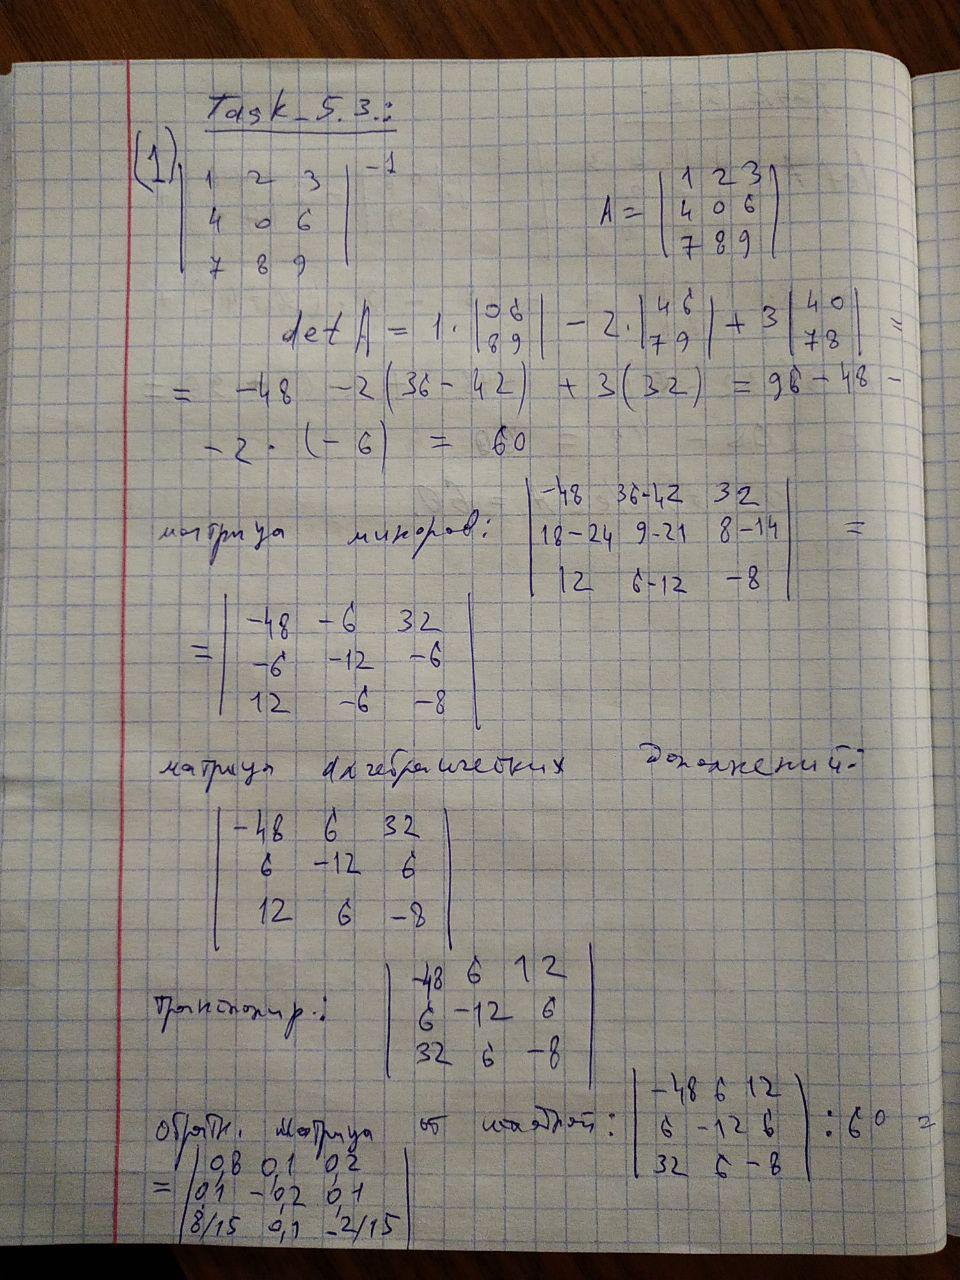 Task_5.3.:
(1) | 1 2 3 | -1
| 4 0 6 |
| 7 8 9 |
A = | 1 2 3 |
| 4 0 6 |
| 7 8 9 |
det A = 1 · | 0 6 | - 2 · | 4 6 | + 3 | 4 0 | =
| 8 9 | | 7 9 | | 7 8 |
= -48 -2(36-42) + 3(32) = 96-48-
-2 · (-6) = 60
матрица миноров: | -48 36-42 32 |
| 18-24 9-21 8-14 | =
| 12 6-12 -8 |
= | -48 -6 32 |
| -6 -12 -6 |
| 12 -6 -8 |
матрица алгебраических дополнений:
| -48 6 32 |
| 6 -12 6 |
| 12 6 -8 |
транспонир.: | -48 6 12 |
| 6 -12 6 |
| 32 6 -8 |
обратн. матрица от : | -48 6 12 |
| 6 -12 6 | : 60 =
| 32 6 -8 |
= | 0,8 0,1 0,2 |
| 0,1 -0,2 0,1 |
| 8/15 0,1 -2/15 |